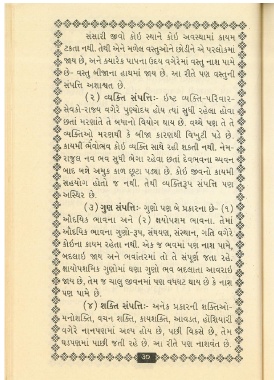 સંસારી જીવો કોઈ સ્થાને કોઈ અવસ્થામાં કાયમ
ટકતા નથી. તેથી એને મળેલ વસ્તુઓને છોડીને એ પરલોકમાં
જાય છે, અને ક્યારેક પાપના ઉદય વગેરેમાં વસ્તુ નાશ પામે
છે- વસ્તુ બીજાના હાથમાં જાય છે. આ રીતે પણ વસ્તુની
સંપત્તિ અશાશ્વત છે.
(૨) વ્યક્તિ સંપત્તિ:- ઇષ્ટ વ્યક્તિ-પરિવાર-
સેવકો-રાજય વગેરે પુણ્યોદય હોય ત્યાં સુધી રહેલા હોવા
છતાં મરણાંતે તે બધાનો વિયોગ થાય છે. વચ્ચે પણ તે તે
વ્યક્તિઓ મરણથી કે બીજા કારણથી વિખુટી પડે છે.
કાયમી ભવોભવ કોઈ વ્યક્તિ સાથે રહી શકતી નથી. નેમ-
રાજુલ નવ ભવ સુધી ભેગા રહેવા છતાં દેવભવના ચ્યવન
બાદ વચ્ચે અમુક કાળ છૂટા પડ્યા છે. કોઇ જીવનો કાયમી
સહયોગ હોતો જ નથી. તેથી વ્યક્તિરૂપ સંપત્તિ પણ
અસ્થિર છે.
(૩) ગુણ સંપત્તિ:- ગુણો પણ બે પ્રકારના છે- (૧)
ઔદયિક ભાવના અને (૨) ક્ષયોપશમ ભાવના. તેમાં
ઔદયિક ભાવના ગુણો-રૂપ, સંઘયણ, સંસ્થાન, ગતિ વગેરે
કોઇના કાયમ રહેતા નથી. એક જ ભવમાં પણ નાશ પામે,
બદલાઇ જાય અને ભવાંતરમાં તો તે સંપૂર્ણ જતા રહે.
ક્ષાયોપશમિક ગુણોમાં ઘણા ગુણો ભવ બદલાતાં આવરાઇ
જાય છે, તેમ જ ચાલુ જીવનમાં પણ વધઘટ થાય છે કે નાશ
પણ પામે છે.
(૪) શક્તિ સંપત્તિ:- અનેક પ્રકારની શક્તિઓ-
મનોશક્તિ, વચન શક્તિ, કાયશક્તિ, આવડત, હોંશિયારી
વગેરે નાનપણમાં અલ્પ હોય છે, પછી વિકસે છે, તેમ
ઘડપણમાં પાછી જતી રહે છે. આ રીતે પણ નાશવંત છે.